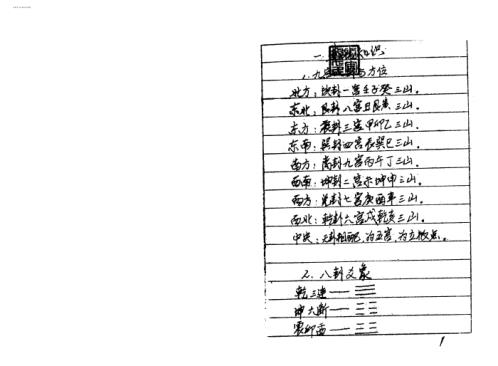 一.
1.九宫 与方位
北方:坎卦一宫壬子癸三山。
东北:艮卦八宫丑艮寅三山。
东方:震卦三宫甲卯乙三山。
东南:巽卦四宫辰巽巳三山。
南方:离卦九宫丙午丁三山。
西南:坤卦二宫未坤申三山。
西方:兑卦七宫庚酉辛三山。
西北:乾卦六宫戌乾亥三山。
中央: 为五宫,为立极点。
2.八卦爻象
乾三连——☰
坤六断——
震仰盂——
1